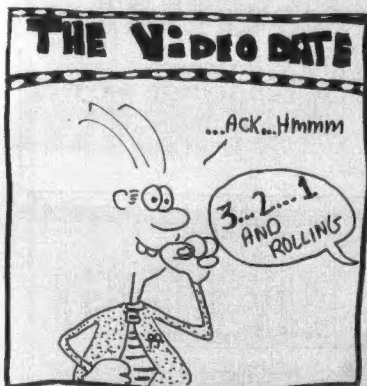 THE ViDEO DATE
...ACK...Hmmm
3...2....1
AND
ROLLING